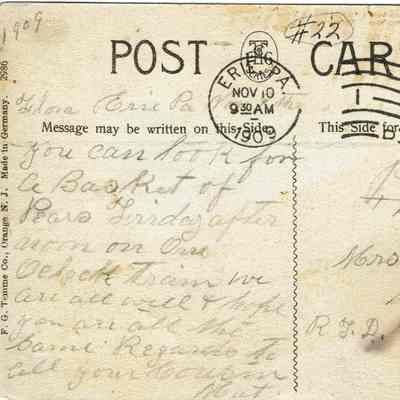 1909
#22
POST CARD
ERIE, PA.
NOV 10
9 30 AM
1909
1
Flora Erie Pa
Message may be written on this Side
This Side for
You can look for
a Basket of
Pears Friday after
noon on One
Oclock train we
are all well & hope
you are all the
Same Regards to
all your Cousin
Mrs
R.F.D.
F. G. Temme Co., Orange N. J. Made in Germany. 2986